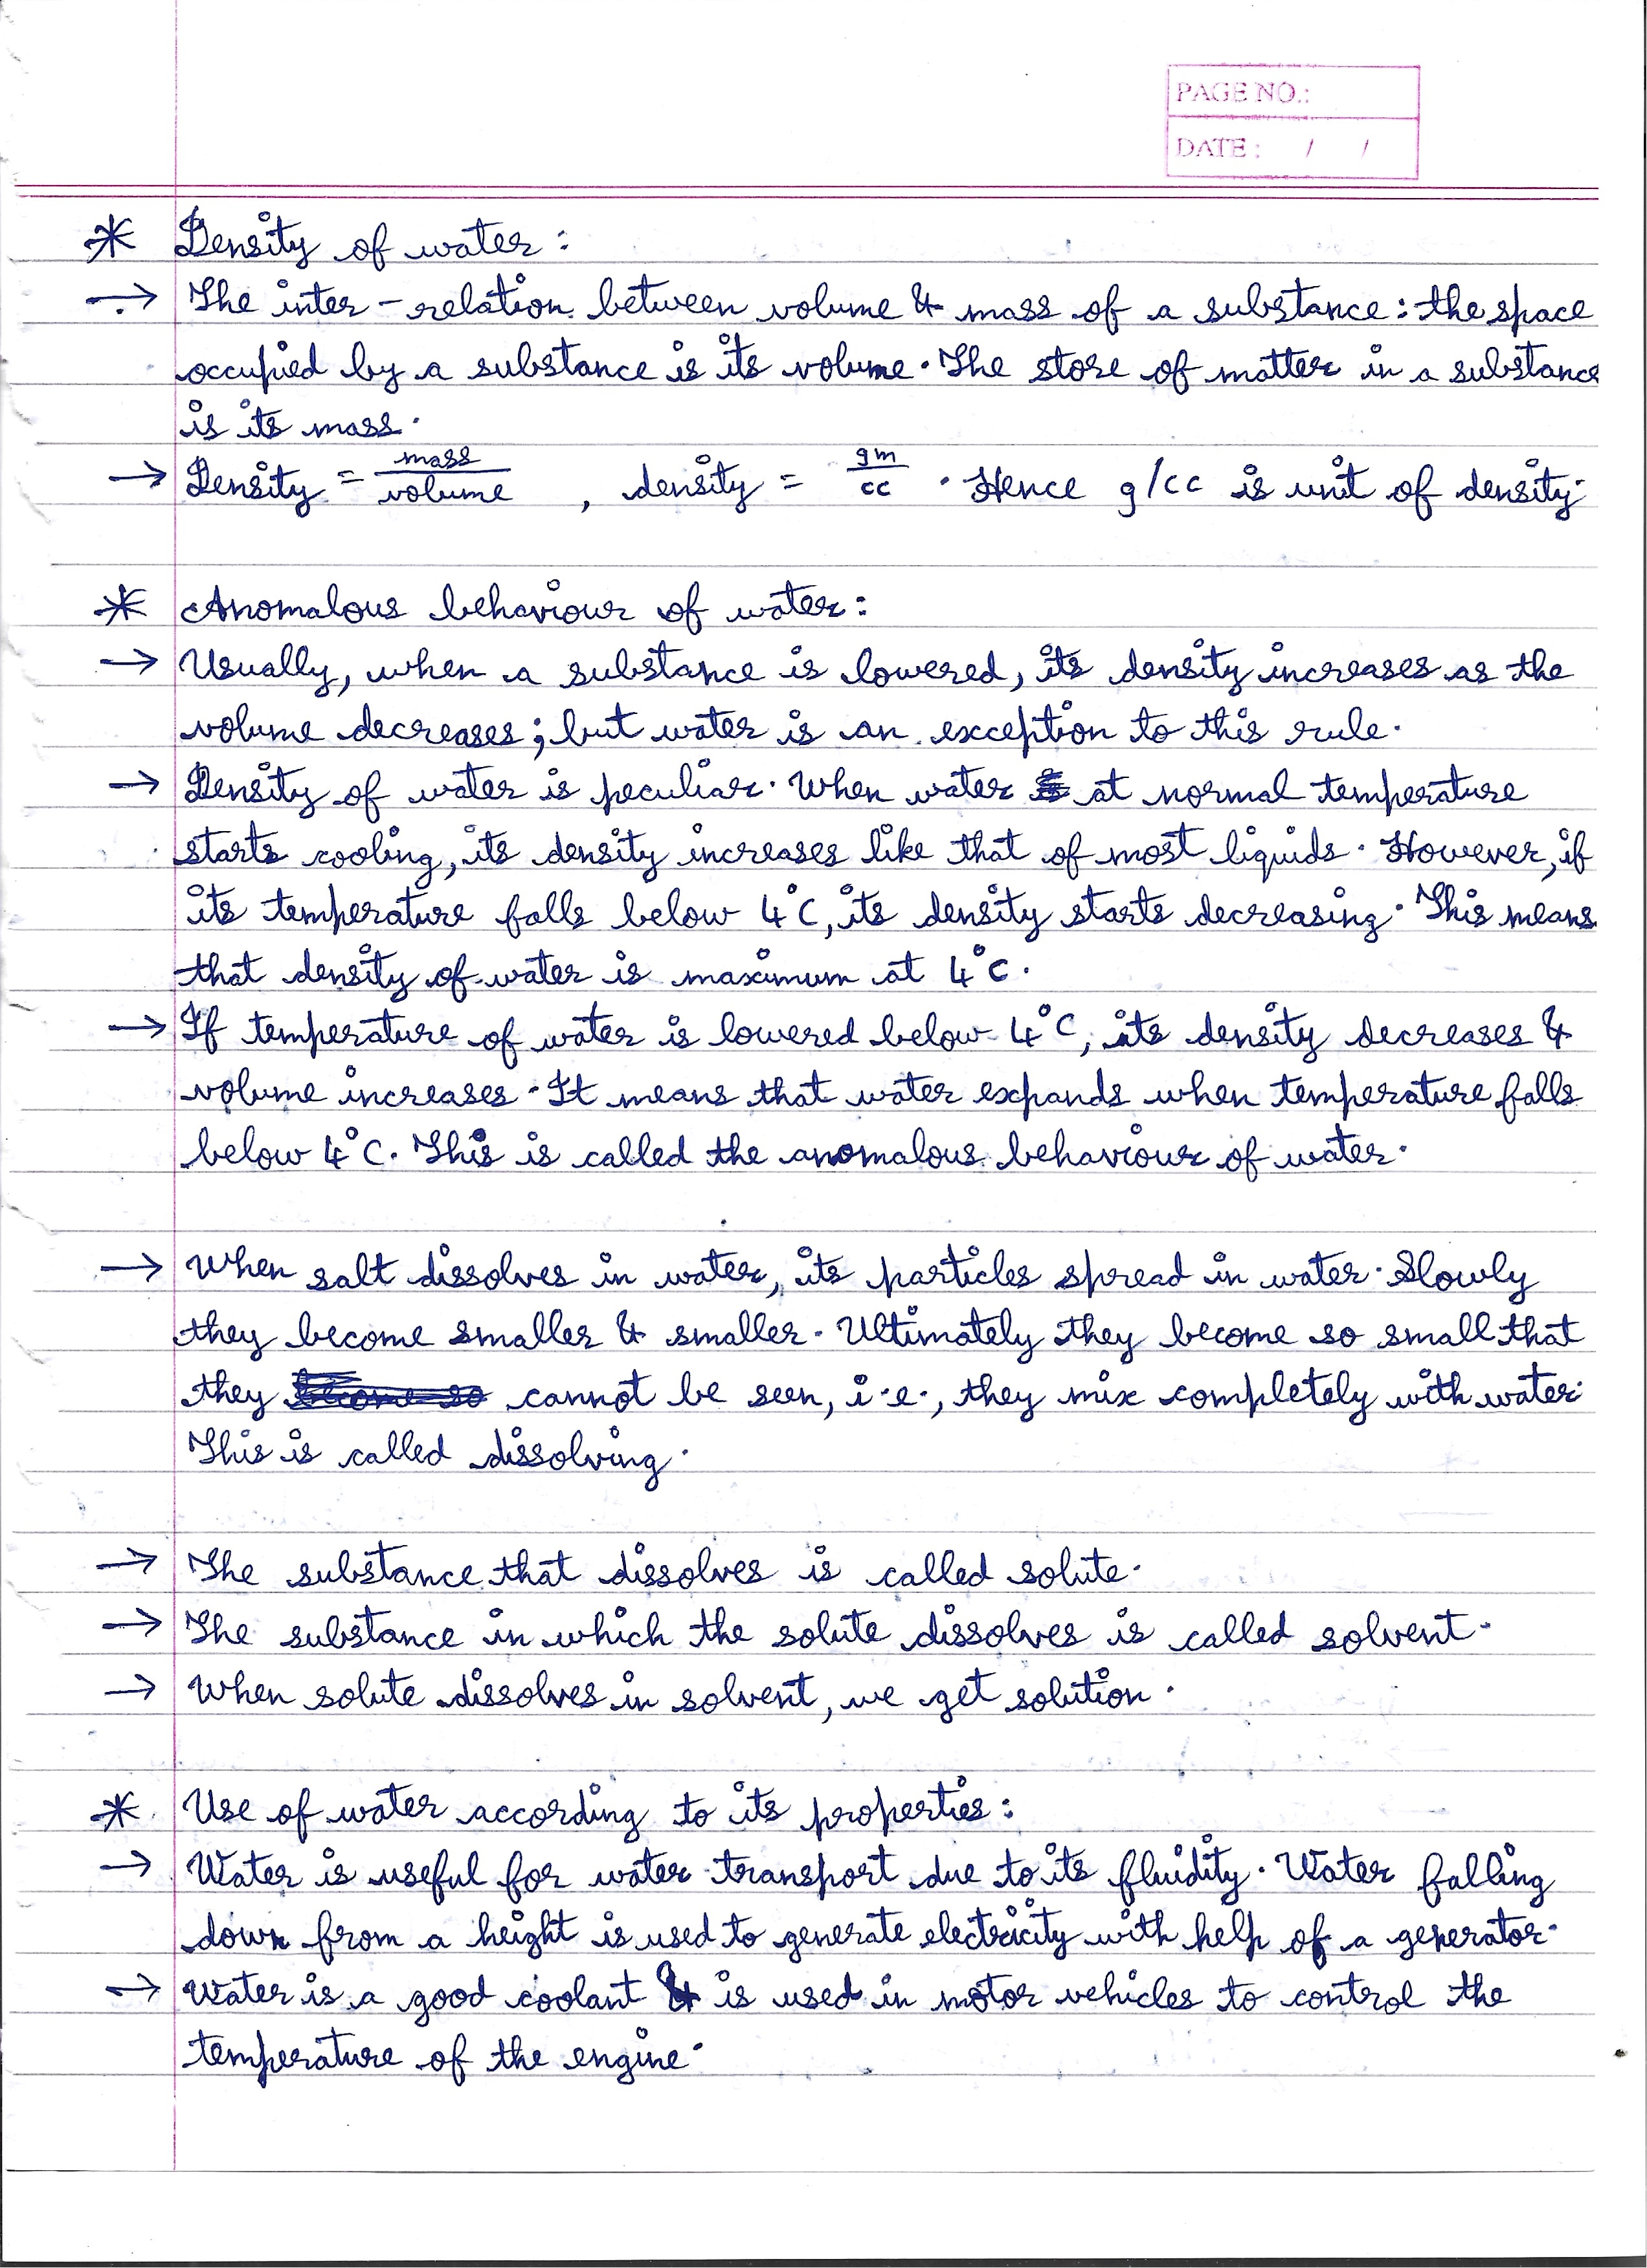 PAGE NO.:
DATE : / /
* Density of water :
→ The inter-relation between volume & mass of a substance : the space
occupied by a substance is its volume. The store of matter in a substance
is its mass.
→ Density = mass/volume , density = gm/cc . Hence g/cc is unit of density.
* Anomalous behaviour of water :
→ Usually, when a substance is lowered, its density increases as the
volume decreases ; but water is an exception to this rule.
→ Density of water is peculiar. When water at normal temperature
starts cooling, its density increases like that of most liquids. However, if
its temperature falls below 4°C, its density starts decreasing. This means
that density of water is maximum at 4°C.
→ If temperature of water is lowered below 4°C, its density decreases &
volume increases. It means that water expands when temperature falls
below 4°C. This is called the anomalous behaviour of water.
→ When salt dissolves in water, its particles spread in water. Slowly
they become smaller & smaller. Ultimately they become so small that
they become so cannot be seen, i.e., they mix completely with water.
This is called dissolving.
→ The substance that dissolves is called solute.
→ The substance in which the solute dissolves is called solvent.
→ When solute dissolves in solvent, we get solution.
* Use of water according to its properties :
→ Water is useful for water transport due to its fluidity. Water falling
down from a height is used to generate electricity with help of a generator.
→ Water is a good coolant & is used in motor vehicles to control the
temperature of the engine.